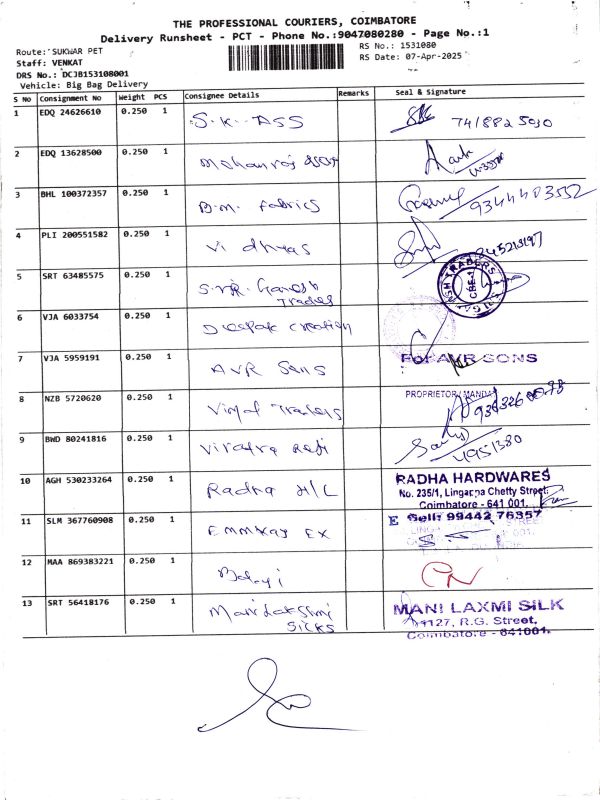 THE PROFESSIONAL COURIERS, COIMBATORE
Delivery Runsheet - PCT - Phone No.:9047080280 - Page No.:1
Route: SUKWAR PET
RS No.: 1531080
Staff: VENKAT
RS Date: 07-Apr-2025
DRS No.: DCJB153108001
Vehicle: Big Bag Delivery
S No Consignment No Weight PCS Consignee Details Remarks Seal & Signature
1 EDQ 24626610 0.250 1 S.K. ASS 7418825030
2 EDQ 13628500 0.250 1 Mohanraj
3 BHL 100372357 0.250 1 B.M. Fabrics 9344403552
4 PLI 200551582 0.250 1 Vidhyas
5 SRT 63485575 0.250 1 Ganesh
Traders
GANESH TRADERS
CBE-1
6 VJA 6033754 0.250 1 Deepak Creation
7 VJA 5959191 0.250 1 AVR Sons For AVR SONS
PROPRIETOR / MANAGER
8 NZB 5720620 0.250 1 Vimal Traders
9 BWD 80241816 0.250 1 4951380
10 AGH 530233264 0.250 1 Radha H/L RADHA HARDWARES
No. 235/1, Lingappa Chetty Street,
Coimbatore - 641 001.
Cell: 99442 76357
11 SLM 367760908 0.250 1 Emmkay Ex
12 MAA 869383221 0.250 1 Balaji
13 SRT 56418176 0.250 1 MANI LAXMI SILK
Silks 127, R.G. Street,
Coimbatore - 641001.